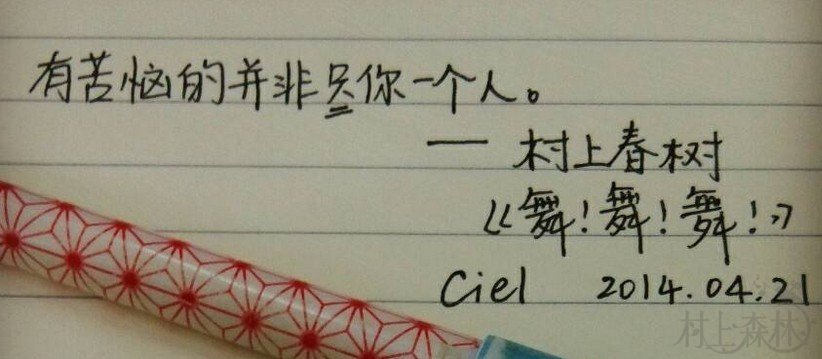 有苦恼的并非只你一个人。
— 村上春树
《舞!舞!舞!》
Ciel 2014.04.21
村上森林